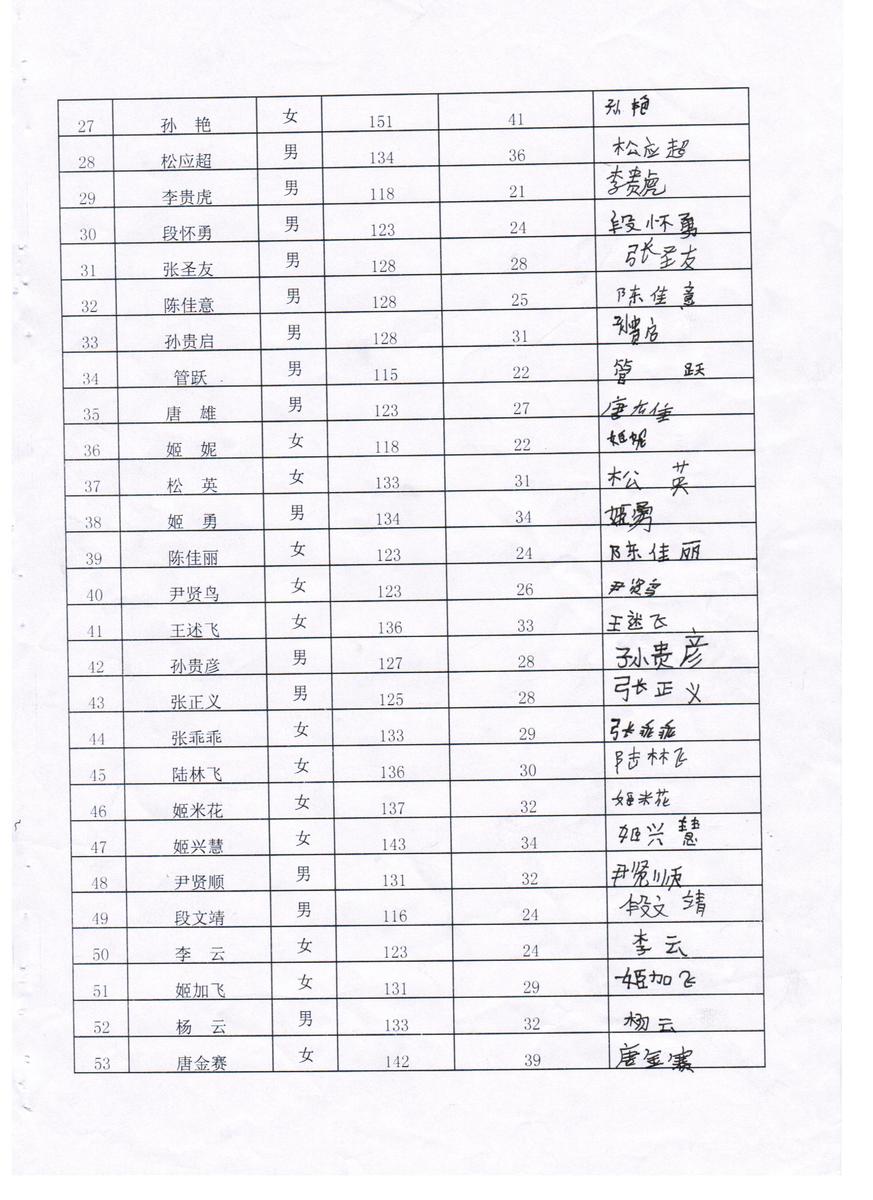 27 孙 艳 女 151 41 孙 艳
28 松应超 男 134 36 松应超
29 李贵虎 男 118 21 李贵虎
30 段怀勇 男 123 24 段怀勇
31 张圣友 男 128 28 张圣友
32 陈佳意 男 128 25 陈佳意
33 孙贵启 男 128 31 孙贵启
34 管跃 男 115 22 管 跃
35 唐 雄 男 123 27 唐雄
36 姬 妮 女 118 22 姬妮
37 松 英 女 133 31 松 英
38 姬 勇 男 134 34 姬勇
39 陈佳丽 女 123 24 陈佳丽
40 尹贤鸟 女 123 26 尹贤鸟
41 王述飞 女 136 33 王述飞
42 孙贵彦 男 127 28 孙贵彦
43 张正义 男 125 28 张正义
44 张乖乖 女 133 29 张乖乖
45 陆林飞 女 136 30 陆林飞
46 姬米花 女 137 32 姬米花
47 姬兴慧 女 143 34 姬兴慧
48 尹贤顺 男 131 32 尹贤顺
49 段文靖 男 116 24 段文靖
50 李 云 女 123 24 李云
51 姬加飞 女 131 29 姬加飞
52 杨 云 男 133 32 杨云
53 唐金赛 女 142 39 唐金赛